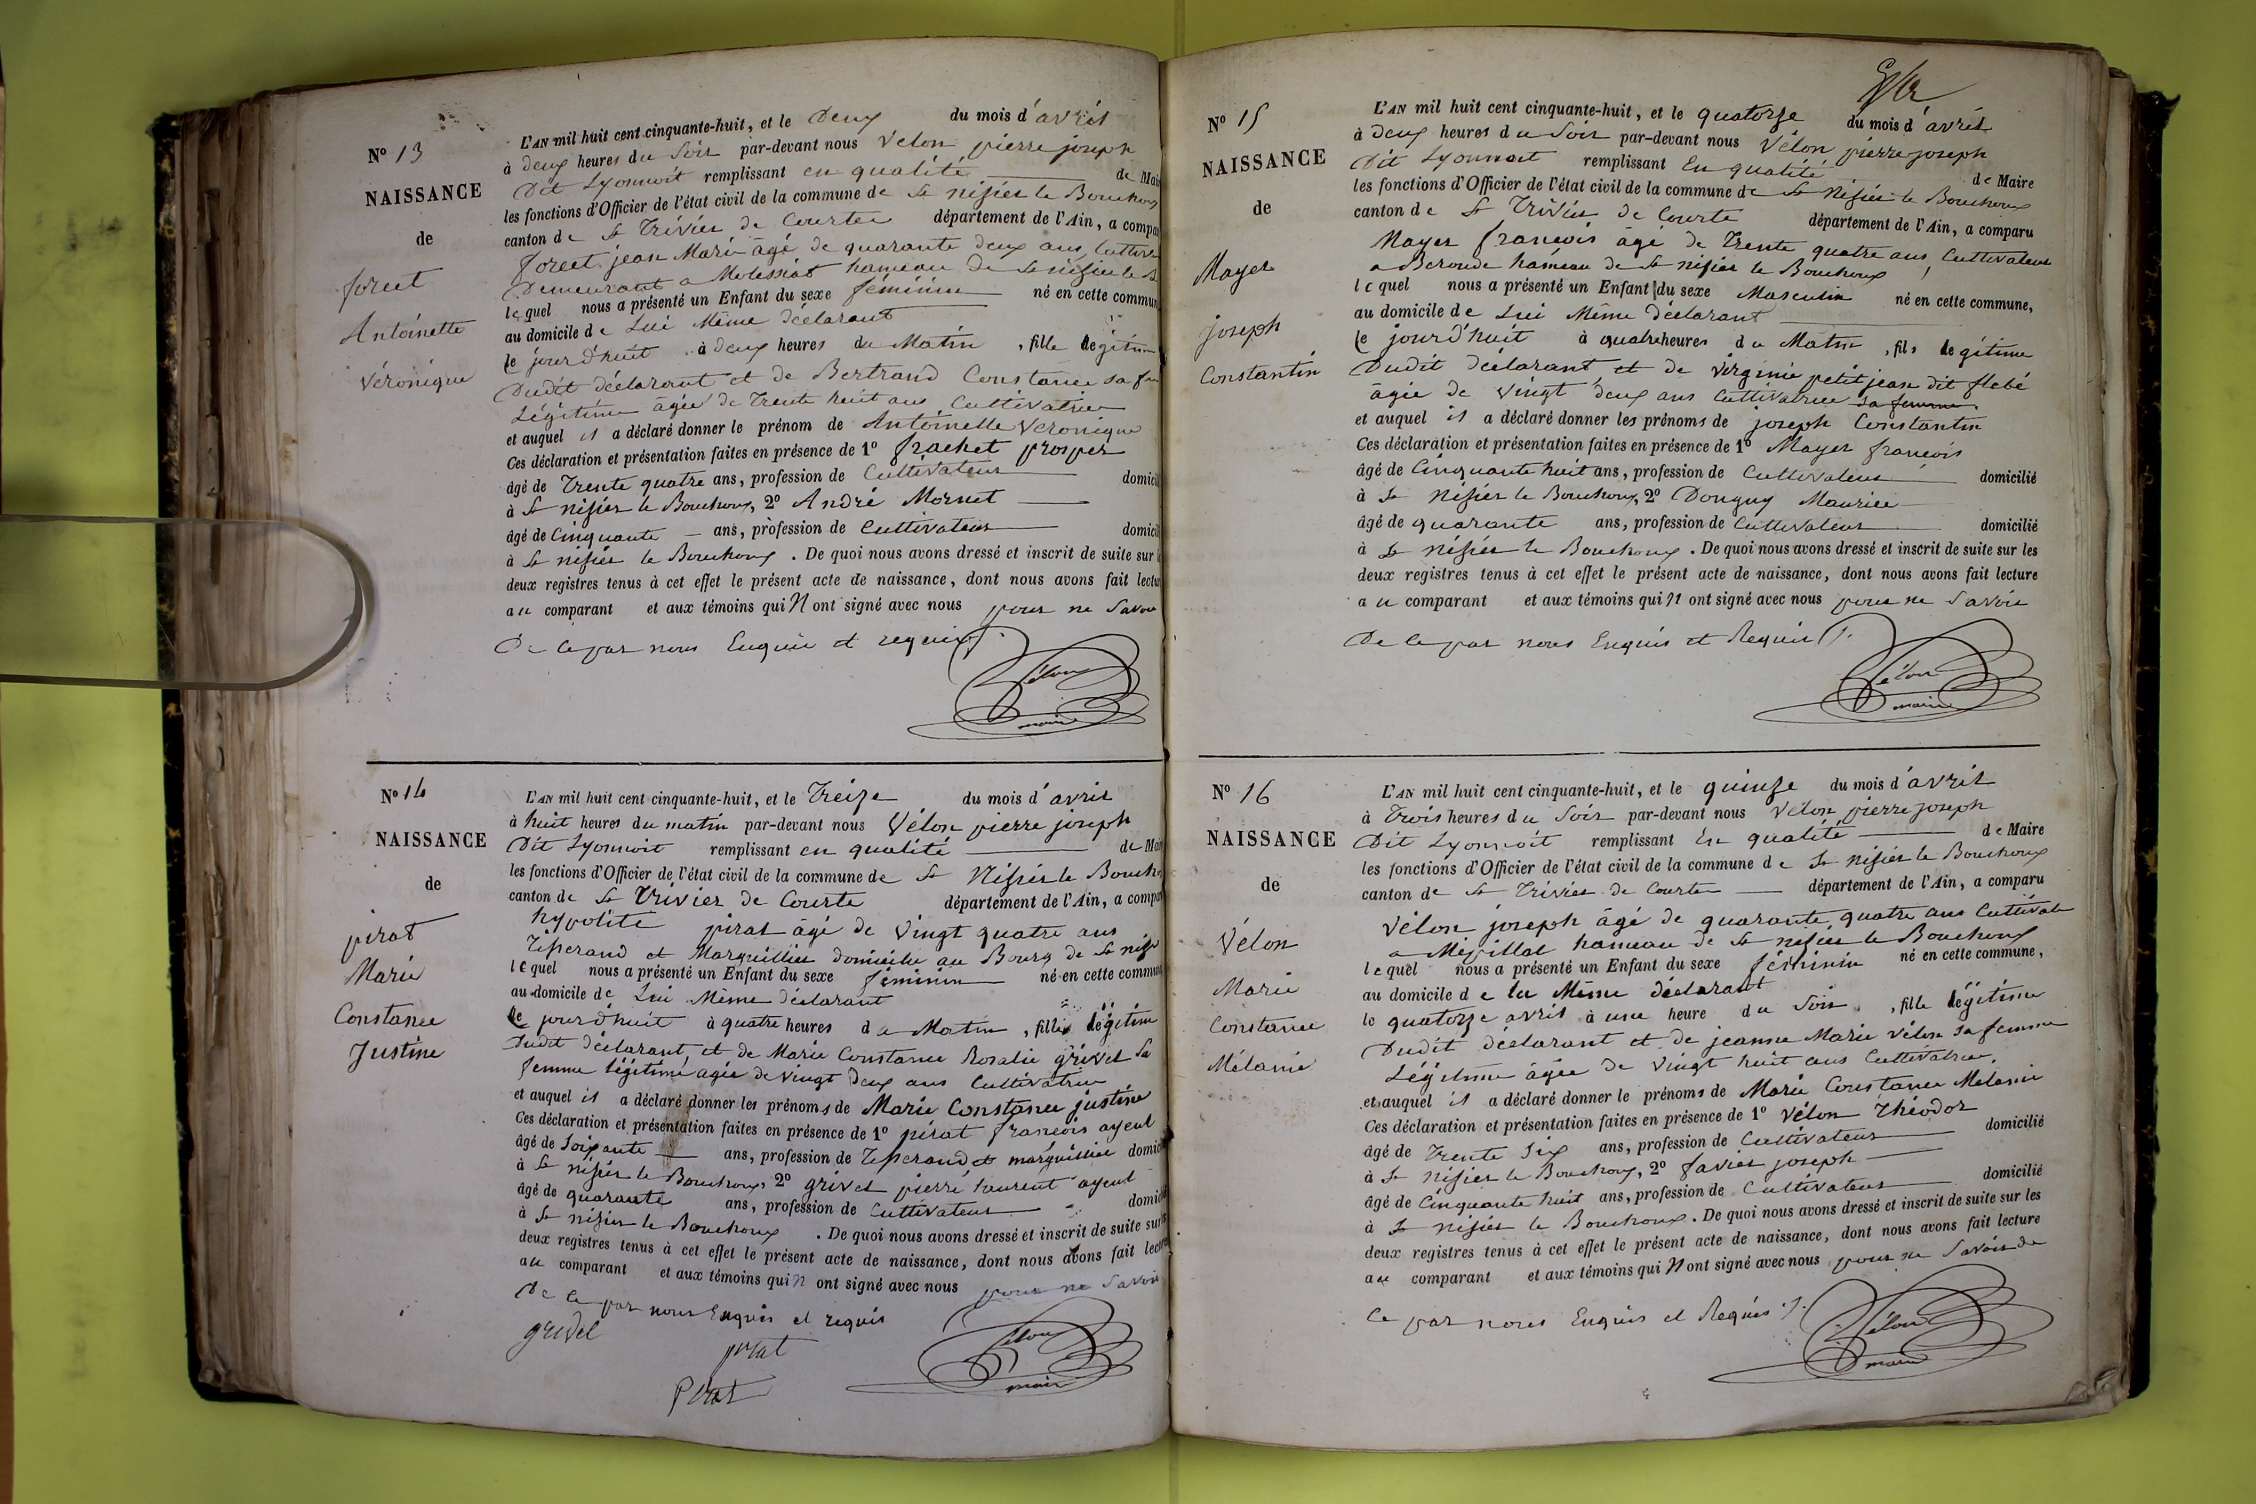 Nº 13
NAISSANCE
de
foreet
Antoinette
Véronique
L'AN mil huit cent cinquante-huit, et le Deux du mois d'avril
à deux heures du Soir par-devant nous Vélon pierre joseph
Dit Lyonnoit remplissant en qualité de Mai
les fonctions d'Officier de l'état civil de la commune de St nisier le Bouchoux
canton de St Trivier de Courtes département de l'Ain, a compar
foreet jean Marie âgé de quarante deux ans, Cultiva
Demeurant a Molissiat hameau de St nisier le B
lequel nous a présenté un Enfant du sexe féminin né en cette commun
au domicile de Lui Même déclarant
le jourd'huit à deux heures du Matin, fille légitim
Dudit déclarant et de Bertrand Constance sa fem
Légitime âgée de Trente huit ans Cultivatrice
et auquel il a déclaré donner le prénom de Antoinette Véronique
Ces déclaration et présentation faites en présence de 1º frachet prosper
âgé de Trente quatre ans, profession de Cultivateur domicil
à St nisier le Bouchoux, 2º André Mornet
âgé de Cinquante ans, profession de Cultivateur domicil
à St nisier le Bouchoux. De quoi nous avons dressé et inscrit de suite sur l
deux registres tenus à cet effet le présent acte de naissance, dont nous avons fait lectur
au comparant et aux témoins qui N ont signé avec nous pour ne Savoir
De ce par nous Enquis et requis
Vélon
maire
Nº 14
NAISSANCE
de
pirat
Marie
Constance
Justine
L'AN mil huit cent cinquante-huit, et le Treize du mois d'avril
à huit heures du matin par-devant nous Vélon pierre joseph
Dit Lyonnoit remplissant en qualité de Mai
les fonctions d'Officier de l'état civil de la commune de St Nisier le Boucho
canton de St Trivier de Courte département de l'Ain, a compar
hypolite pirat âgé de Vingt quatre ans
Tisserand et Marguillier domicilié au Bourg de St nisi
lequel nous a présenté un Enfant du sexe féminin né en cette commun
au domicile de Lui Même déclarant
le jourd'huit à quatre heures du Matin, fille légitim
Dudit déclarant, et de Marie Constance Rosalie grivet Sa
femme légitime agée de vingt deux ans Cultivatrice
et auquel il a déclaré donner les prénoms de Marie Constance justine
Ces déclaration et présentation faites en présence de 1º pirat francois ayeul
âgé de Soixante ans, profession de Tisserand et marguillier domic
à St nisier le Bouchoux, 2º grivet pierre laurent ayeul
âgé de quarante ans, profession de Cultivateur domici
à St nisier le Bouchoux. De quoi nous avons dressé et inscrit de suite sur
deux registres tenus à cet effet le présent acte de naissance, dont nous avons fait lectur
au comparant et aux témoins qui n ont signé avec nous pour ne Savoir
De ce par nous Enquis et requis
grivel
pirat
Pirat
Vélon
maire
Nº 15
NAISSANCE
de
Mayer
joseph
Constantin
L'AN mil huit cent cinquante-huit, et le quatorze du mois d'avril
à deux heures du Soir par-devant nous Vélon pierre joseph
Dit Lyonnoit remplissant En qualité de Maire
les fonctions d'Officier de l'état civil de la commune de St Nisier le Bouchoux
canton de St Trivier de Courte département de l'Ain, a comparu
Mayer francois âgé de Trente quatre ans, Cultivateur
a Beroude hameau de St nisier le Bouchoux
lequel nous a présenté un Enfant du sexe Masculin né en cette commune,
au domicile de Lui Même déclarant
le jourd'huit à quatre heures du Matin, fils légitime
Dudit déclarant et de virginie petit jean dit flebé
âgée de vingt deux ans Cultivatrice sa femme
et auquel il a déclaré donner les prénoms de joseph Constantin
Ces déclaration et présentation faites en présence de 1º Mayer francois
âgé de Cinquante huit ans, profession de Cultivateur domicilié
à St Nisier le Bouchoux, 2º Donguy Maurice
âgé de quarante ans, profession de Cultivateur domicilié
à St Nisier le Bouchoux. De quoi nous avons dressé et inscrit de suite sur les
deux registres tenus à cet effet le présent acte de naissance, dont nous avons fait lecture
au comparant et aux témoins qui n ont signé avec nous pour ne Savoir
De ce par nous Enquis et Requis
Vélon
maire
Nº 16
NAISSANCE
de
Vélon
Marie
Constance
Mélanie
L'AN mil huit cent cinquante-huit, et le quinze du mois d'avril
à Trois heures du Soir par-devant nous Vélon pierre joseph
Dit Lyonnoit remplissant En qualité de Maire
les fonctions d'Officier de l'état civil de la commune de St Nisier le Bouchoux
canton de St Trivier de Courte département de l'Ain, a comparu
Vélon joseph âgé de quarante quatre ans Cultivate
a Mépillat hameau de St nisier le Bouchoux
lequel nous a présenté un Enfant du sexe féminin né en cette commune,
au domicile de lu Même déclarant
le quatorze avril à une heure du Soir, fille légitime
Dudit déclarant et de jeanne Marie Vélon sa femme
Légitime âgée de vingt huit ans Cultivatrice.
et auquel il a déclaré donner le prénoms de Marie Constance Mélanie
Ces déclaration et présentation faites en présence de 1º Vélon Théodor
âgé de Trente Six ans, profession de Cultivateur domicilié
à St Nisier le Bouchoux, 2º favier joseph
âgé de Cinquante huit ans, profession de Cultivateur domicilié
à St Nisier le Bouchoux. De quoi nous avons dressé et inscrit de suite sur les
deux registres tenus à cet effet le présent acte de naissance, dont nous avons fait lecture
au comparant et aux témoins qui N ont signé avec nous pour ne Savoir de
Ce par nous Enquis et Requis
Vélon
maire